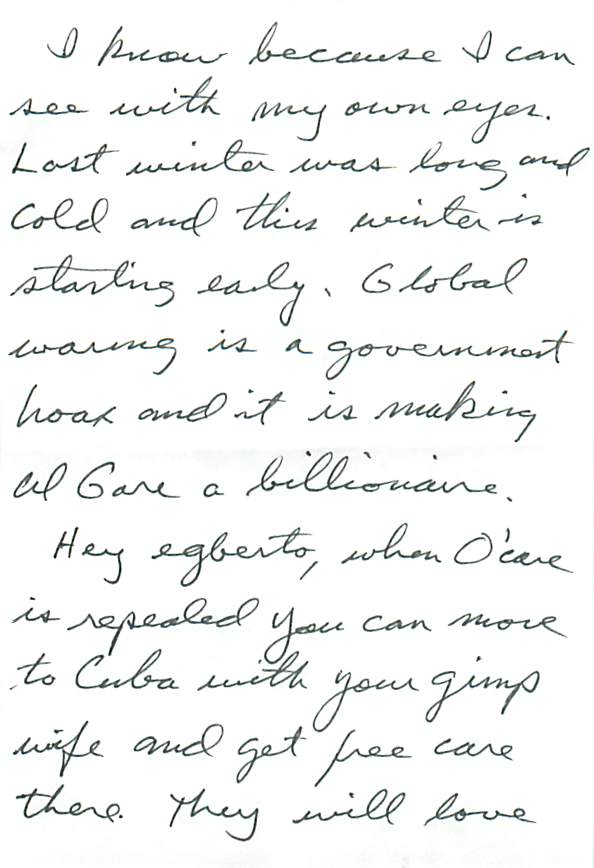 I know because I can
see with my own eyes.
Last winter was long and
cold and this winter is
starting early. Global
waring is a government
hoax and it is making
Al Gore a billionaire.
Hey egberto, when O'care
is repealed you can move
to Cuba with your gimp
wife and get free care
there. They will love